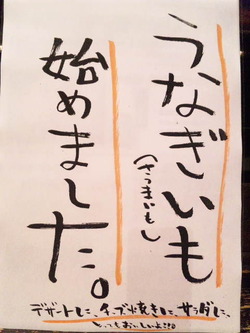 うなぎいも
（さつまいも）
始めました。
デザートに、チーズ焼きに、サラダに、
とってもおいしいよ!!